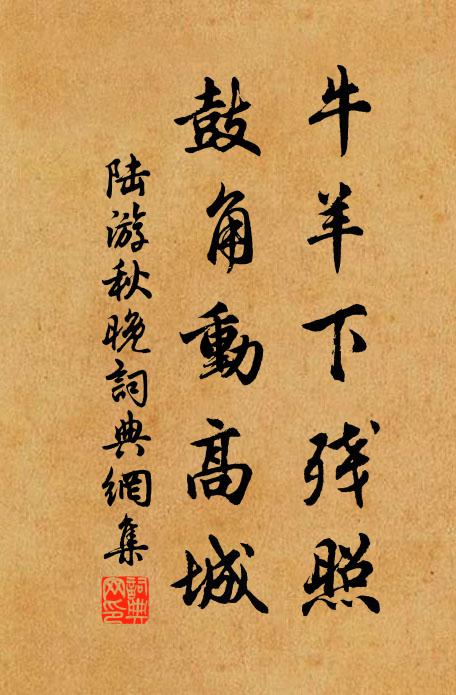 牛羊下残照
鼓角動高城
陆游秋晚詞典網集
詞典网印